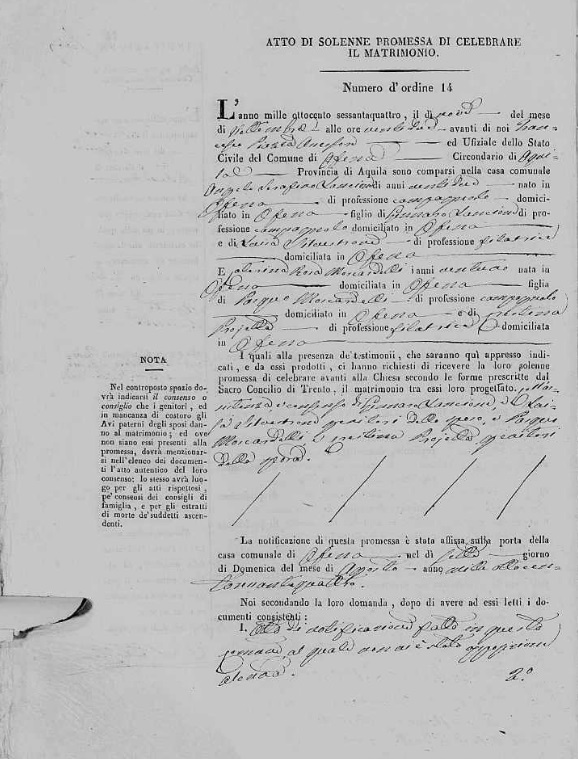 ATTO DI SOLENNE PROMESSA DI CELEBRARE
IL MATRIMONIO.
Numero d'ordine 14
L'anno mille ottocento sessantaquattro, il dì nove del mese
di Settembre alle ore avanti di noi
ed Ufiziale dello Stato
Civile del Comune di Ofena Circondario di Aqui-
la Provincia di Aquila sono comparsi nella casa comunale
Angelo Serafino di anni nato in
Ofena di professione campagnolo domici-
liato in Ofena figlio di Gennaro di pro-
fessione campagnolo domiciliato in Ofena
e di Silvestrone di professione filatrice
domiciliata in Ofena
E Rosa Moscardelli i anni nata in
Ofena domiciliata in Ofena figlia
di Moscardelli di professione campagnolo
domiciliato in Ofena e di
di professione filatrice domiciliata
in Ofena
I quali alla presenza de' testimonii, che saranno quì appresso indi-
cati, e da essi prodotti, ci hanno richiesti di ricevere la loro solenne
promessa di celebrare avanti alla Chiesa secondo le forme prescritte dal
Sacro Concilio di Trento, il matrimonio tra essi loro progettato.
Gennaro
Silvestrone genitori dello sposo, e
Moscardelli e genitori
della sposa.
NOTA
Nel controposto spazio do-
vrà indicarsi il consenso o
consiglio che i genitori, ed
in mancanza di costoro gli
Avi paterni degli sposi dan-
no al matrimonio; ed ove
non siano essi presenti alla
promessa, dovrà menzionar-
si nell'elenco dei documen-
ti l'atto autentico del loro
consenso: lo stesso avrà luo-
go per gli atti rispettosi,
pe' consensi dei consigli di
famiglia, e per gli estratti
di morte de' suddetti ascen-
denti.
La notificazione di questa promessa è stato affissa sulla porta della
casa comunale di Ofena nel dì sette giorno
di Domenica del mese di Agosto anno mille ottocen-
to
Noi secondando la loro domanda, dopo di avere ad essi letti i do-
cumenti consistenti:
1. Atto di notificazione fatto in questo
comune, al quale non vi è stato opposizione
alcuna.
2.°